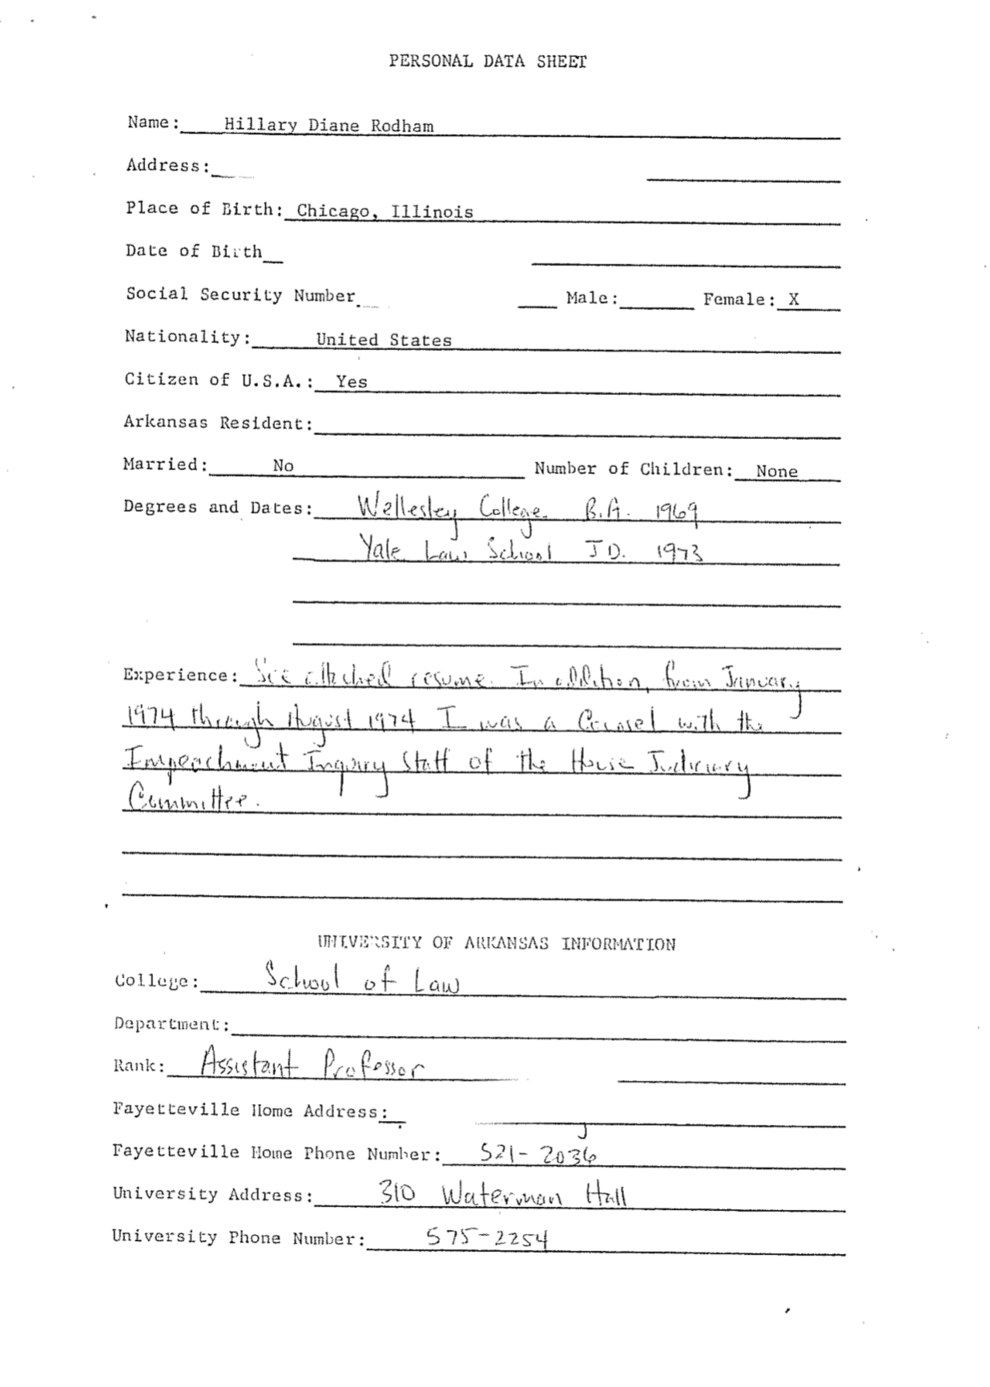 PERSONAL DATA SHEET
Name: Hillary Diane Rodham
Address:
Place of Birth: Chicago, Illinois
Date of Birth
Social Security Number Male: Female: X
Nationality: United States
Citizen of U.S.A.: Yes
Arkansas Resident:
Married: No Number of Children: None
Degrees and Dates: Wellesley College B.A. 1969
Yale Law School JD. 1973
Experience: See attached resume. In addition, from January
1974 through August 1974 I was a Counsel with the
Impeachment Inquiry Staff of the House Judiciary
Committee.
UNIVERSITY OF ARKANSAS INFORMATION
College: School of Law
Department:
Rank: Assistant Professor
Fayetteville Home Address:
Fayetteville Home Phone Number: 521-2036
University Address: 310 Waterman Hall
University Phone Number: 575-2254